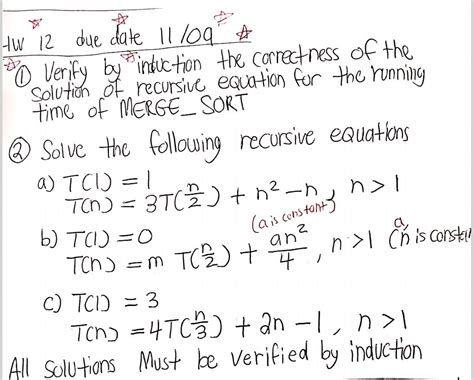 HW 12 due date 11/09
① Verify by induction the correctness of the
Solution of recursive equation for the running
time of MERGE_SORT
② Solve the following recursive equations
a) T(1) = 1
T(n) = 3T(n/2) + n² - n, n > 1
(a is constant)
b) T(1) = 0
T(n) = m T(n/2) + an²/4, n > 1 (n is const
a
c) T(1) = 3
T(n) = 4T(n/3) + 2n - 1, n > 1
All Solutions Must be verified by induction